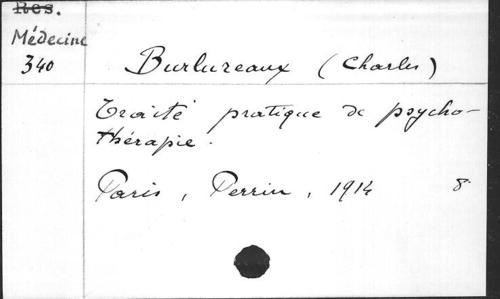 Res.
Médecine
340
Burlureaux (Charles)
Traité pratique de psycho-
thérapie.
Paris, Perrin, 1914 8°